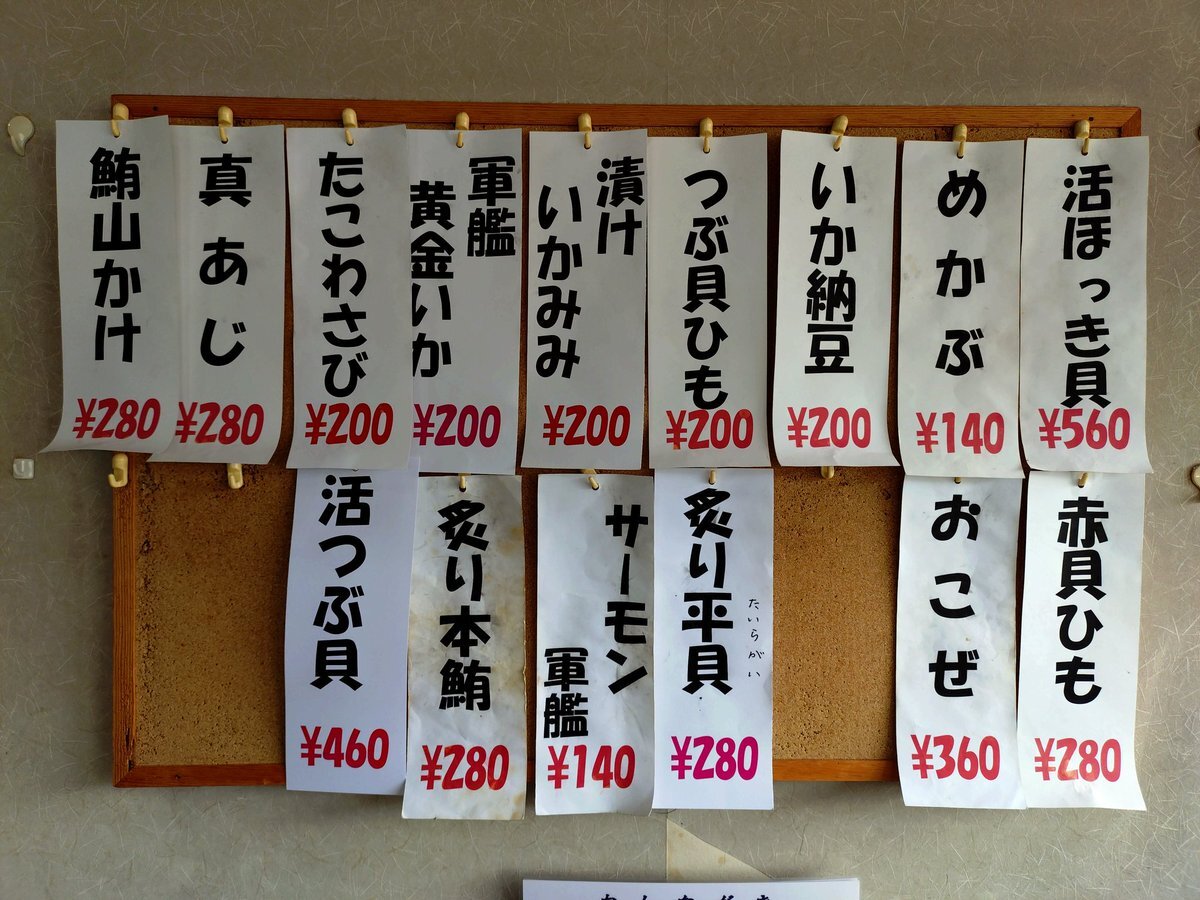 活ほっき貝
¥560
めかぶ
¥140
いか納豆
¥200
つぶ貝ひも
¥200
漬け
いかみみ
¥200
軍艦
黄金いか
¥200
たこわさび
¥200
真あじ
¥280
鮪山かけ
¥280
赤貝ひも
¥280
おこぜ
¥360
たいらがい
炙り平貝
¥280
サーモン
軍艦
¥140
炙り本鮪
¥280
活つぶ貝
¥460